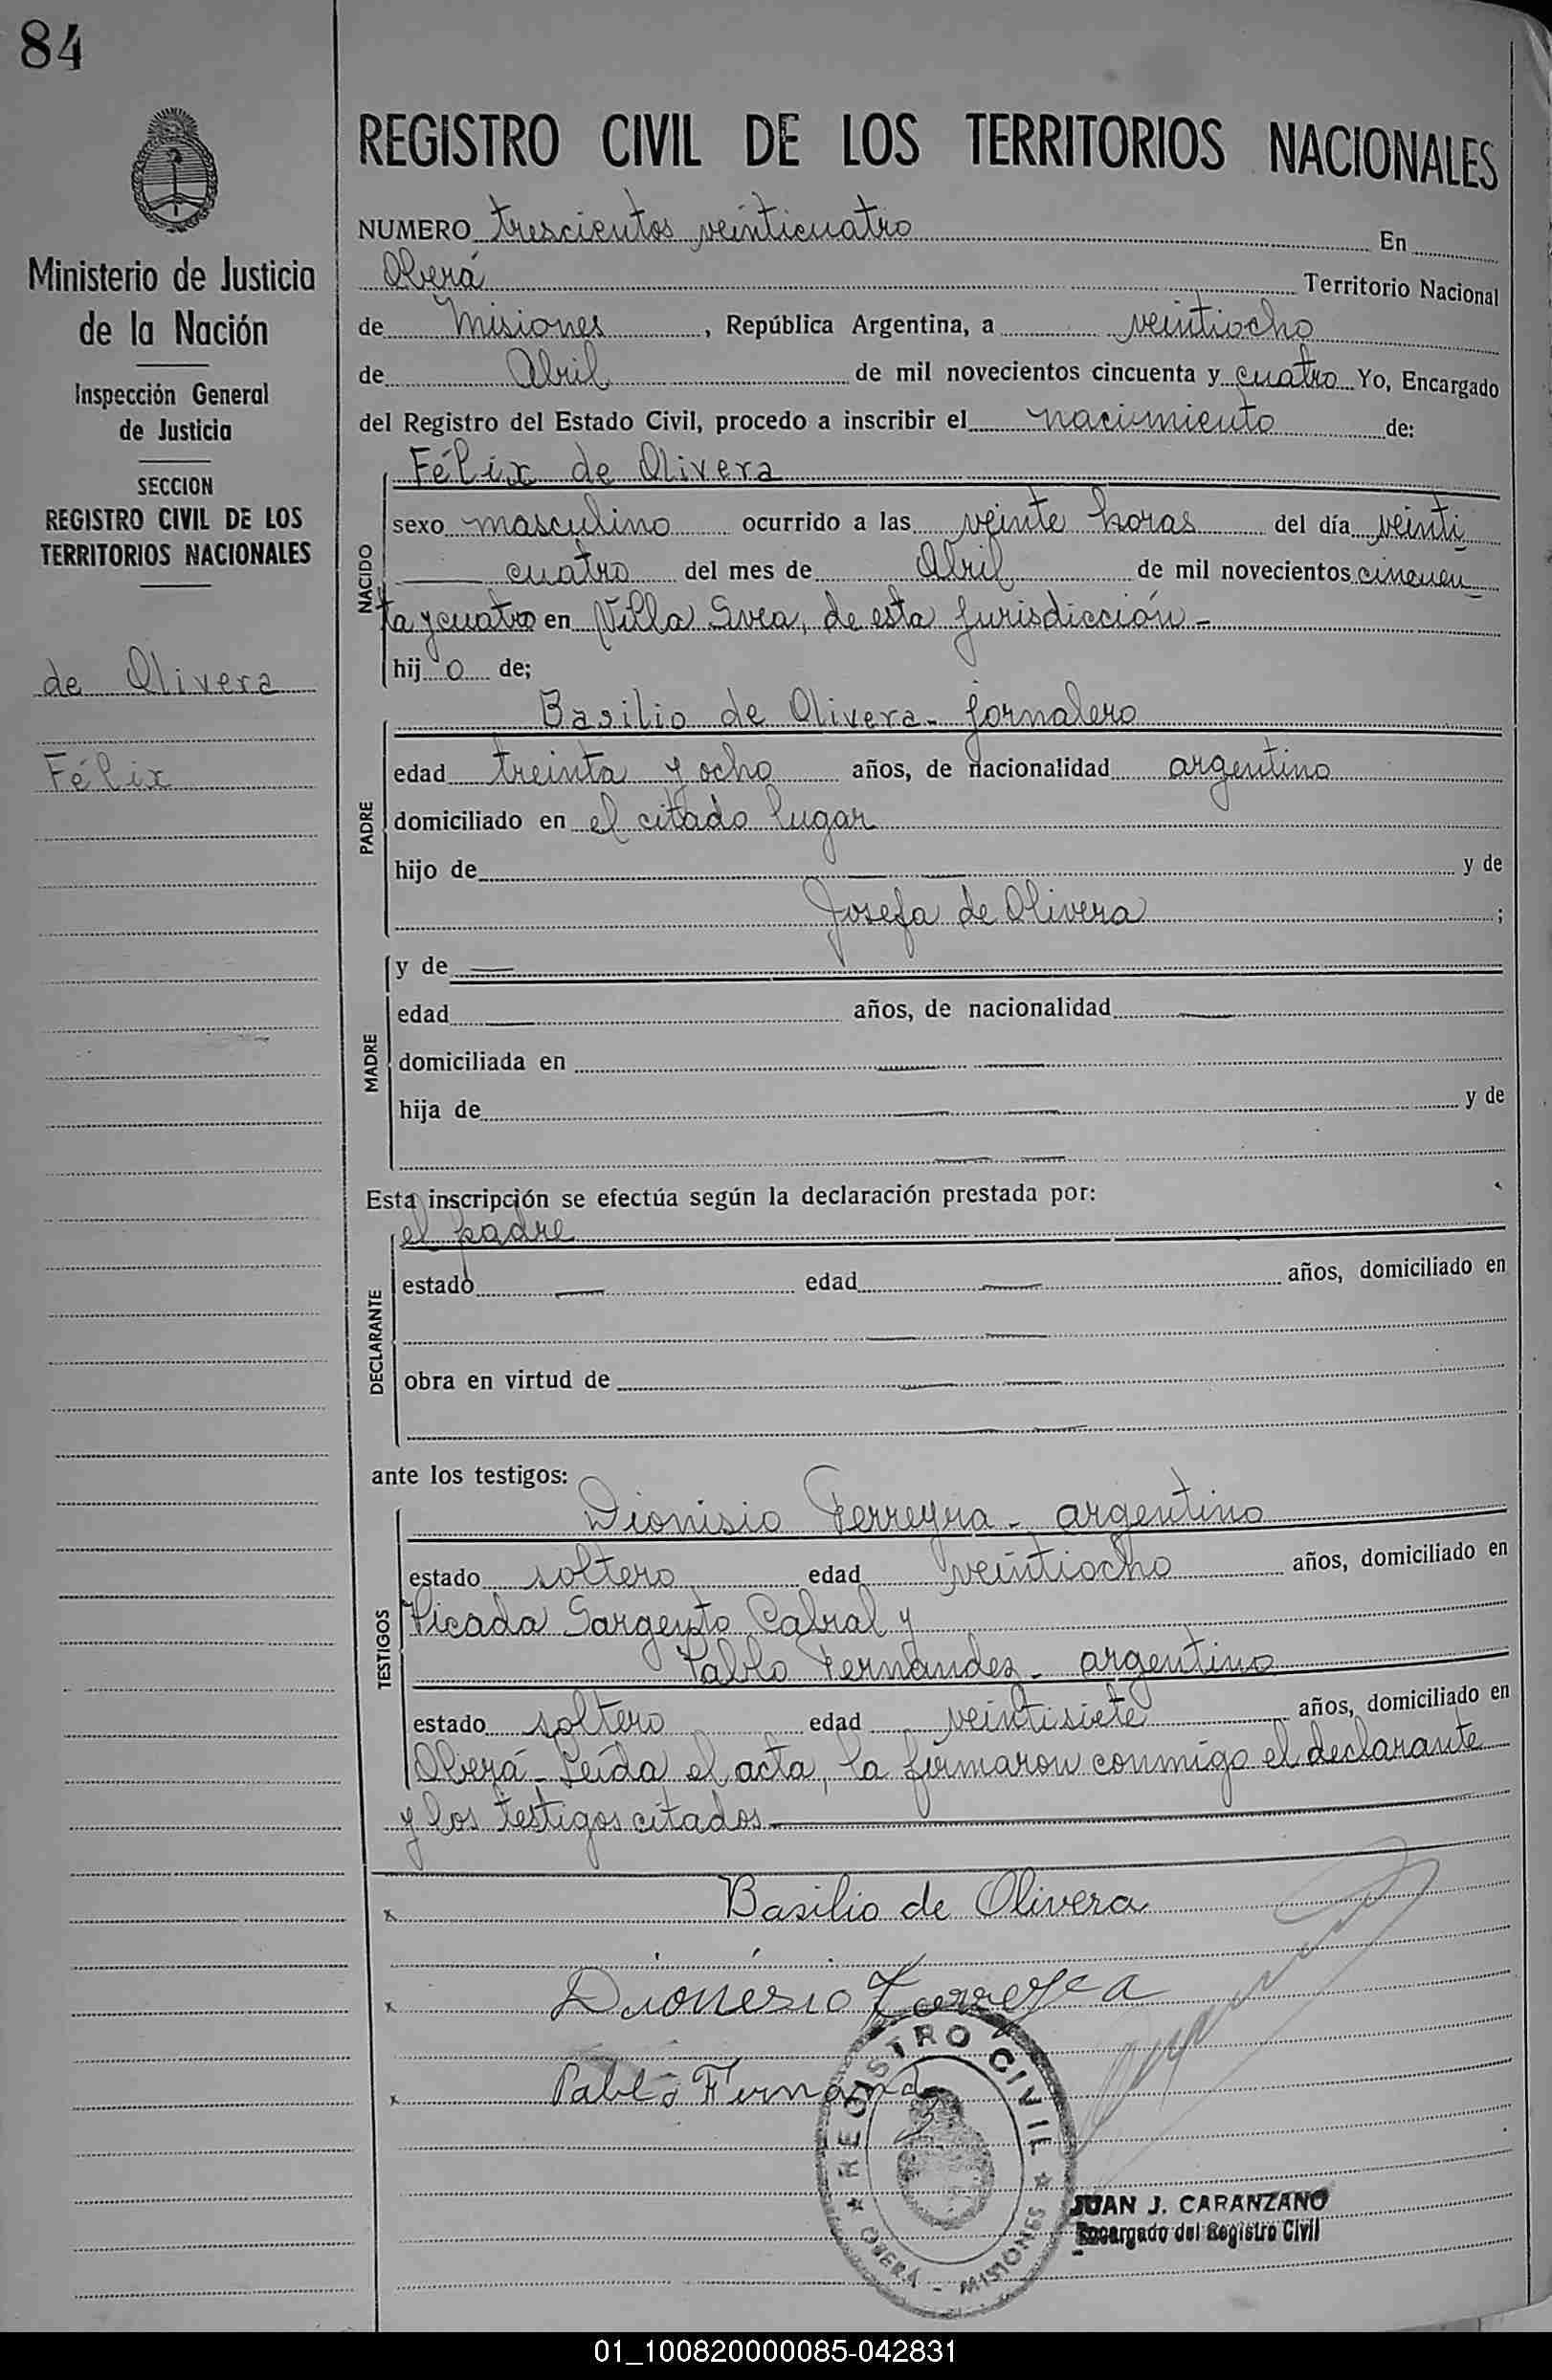 84
REGISTRO CIVIL DE LOS TERRITORIOS NACIONALES
Ministerio de Justicia
de la Nación
Inspección General
de Justicia
SECCION
REGISTRO CIVIL DE LOS
TERRITORIOS NACIONALES
de Olivera
Félix
NUMERO trescientos veinticuatro En
Oberá Territorio Nacional
de Misiones, República Argentina, a veintiocho
de Abril de mil novecientos cincuenta y cuatro Yo, Encargado
del Registro del Estado Civil, procedo a inscribir el nacimiento de:
NACIDO
Félix de Olivera
sexo masculino ocurrido a las veinte horas del día veinti
cuatro del mes de Abril de mil novecientos cincuen
ta y cuatro en Villa Svea, de esta jurisdicción -
hijo de;
PADRE
Basilio de Olivera - jornalero
edad treinta y ocho años, de nacionalidad argentino
domiciliado en el citado lugar
hijo de — — y de
Josefa de Olivera ;
MADRE
y de —
edad — años, de nacionalidad —
domiciliada en — —
hija de — — y de
— —
Esta inscripción se efectúa según la declaración prestada por:
DECLARANTE
el padre
estado — edad — años, domiciliado en
— —
obra en virtud de — —
— —
ante los testigos:
TESTIGOS
Dionisio Ferreyra - argentino
estado soltero edad veintiocho años, domiciliado en
Picada Sargento Cabral y
Pablo Fernandez - argentino
estado soltero edad veintisiete años, domiciliado en
Oberá - Leída el acta, la firmaron conmigo el declarante
y los testigos citados —
x Basilio de Olivera
x Dionésio Ferreyra
x Pablo Fernand
REGISTRO CIVIL
OBERÁ - MISIONES
JUAN J. CARANZANO
Encargado del Registro Civil
01_100820000085-042831